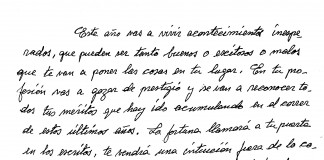 Este año vas a vivir acontecimientos inespe-
rados, que pueden ser tanto buenos o exitosos o malos
que te van a poner las cosas en tu lugar. En tu pro-
fesión vas a gozar de prestigio y se van a reconocer to-
dos tus méritos que hay ido acumulando en el correr
de estos últimos años. La fortuna llamará a tu puerta
en los escritos, te vendrá una intuición fuera de lo co-